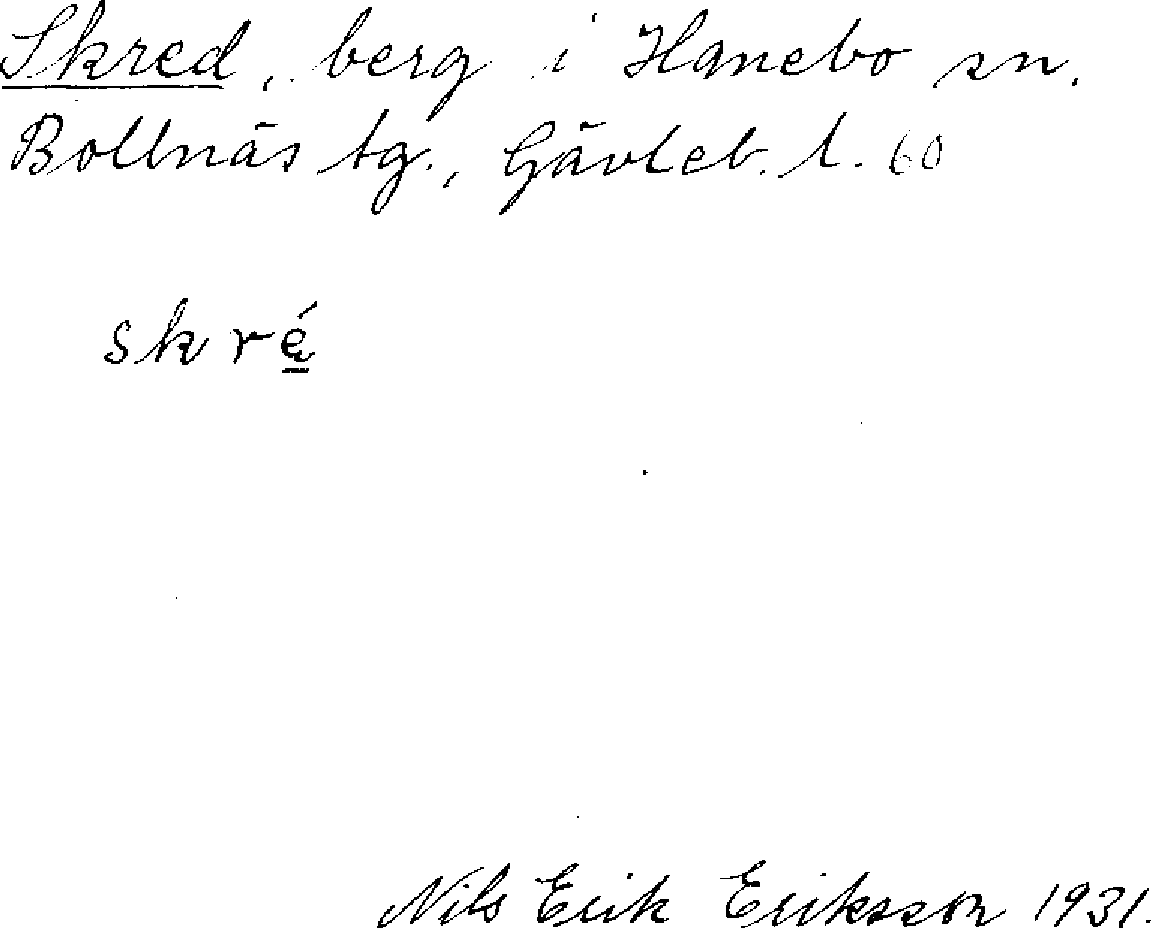 Skred, berg i Hanebo sn.
Bollnäs tg., Gävleb. l. 60
skré̲
Nils Erik Eriksson 1931.